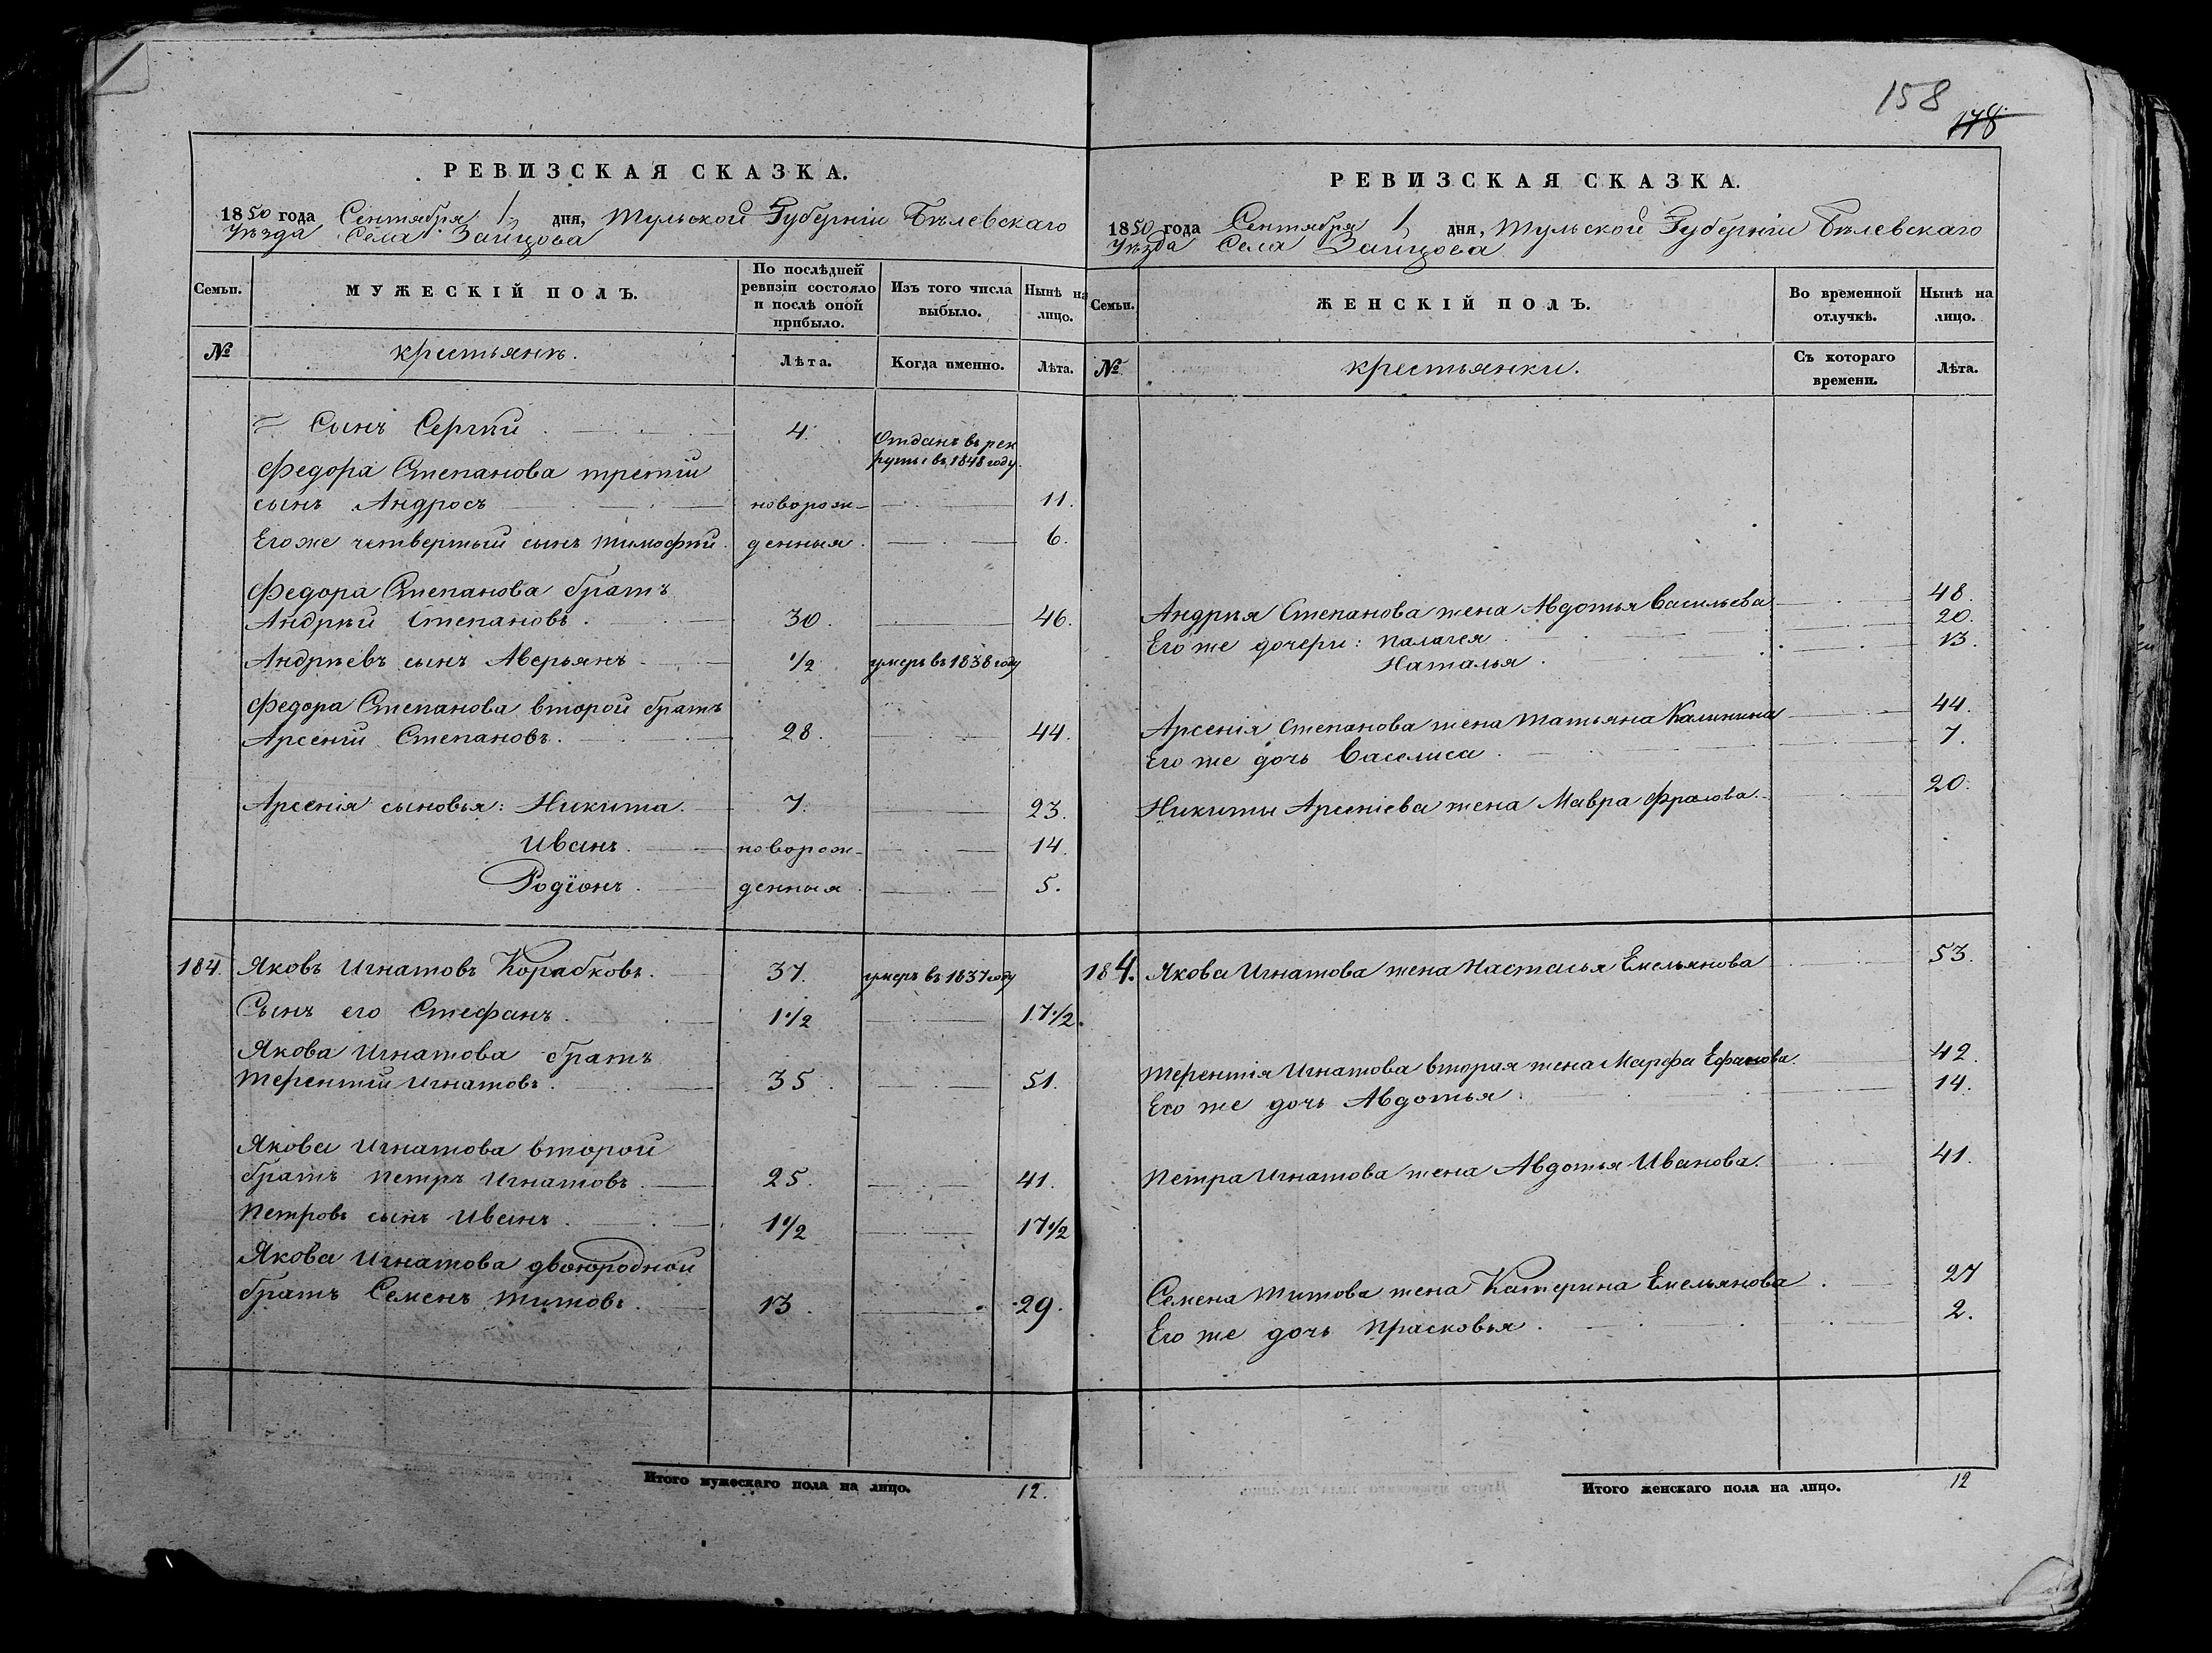 158
178
РЕВИЗСКАЯ СКАЗКА.
1850 года Сентября 1 дня, Тульской Губерніи Бѣлевскаго
Уѣзда Села Зайцова
Семьи.
МУЖЕСКІЙ ПОЛЪ.
По послѣдней ревизіи состояло и послѣ оной прибыло.
Изъ того числа выбыло.
Нынѣ на лицо.
№
крестьянъ.
Лѣта.
Когда именно.
Лѣта.
Сынъ Сергѣй 4. Отданъ въ рек
руты въ 1848 году.
Федора Степанова третій
сынъ Андросъ новорож- 11.
Его же четвертый сынъ Тимофѣй денныя. 6.
Федора Степанова братъ
Андрѣй Степановъ. 30. 46.
Андрѣевъ сынъ Аверьянъ 1/2 умеръ въ 1838 году
Федора Степанова второй братъ
Арсеній Степановъ. 28. 44.
Арсенія сыновья: Никита. 7. 23.
Иванъ. новорож- 14.
Родіонъ. денныя 5.
184. Яковъ Игнатовъ Корабковъ. 37. умеръ въ 1837 году
Сынъ его Стефанъ. 1 1/2 17 1/2.
Якова Игнатова братъ
Терентій Игнатовъ. 35. 51.
Якова Игнатова второй
братъ Петръ Игнатовъ. 25. 41.
Петровъ сынъ Иванъ. 1 1/2 17 1/2
Якова Игнатова двоюродной
братъ Семенъ Титовъ. 13. 29.
Итого мужескаго пола на лицо. 12.
РЕВИЗСКАЯ СКАЗКА.
1850 года Сентября 1 дня, Тульской Губерніи Бѣлевскаго
Уѣзда Села Зайцова
Семьи.
ЖЕНСКІЙ ПОЛЪ.
Во временной отлучкѣ.
Нынѣ на лицо.
№
крестьянки.
Съ котораго времени.
Лѣта.
Андрѣя Степанова жена Авдотья Васильева 48.
Его же дочери: Палагея 20.
Наталья. 13.
Арсенія Степанова жена Татьяна Калинина 44.
Его же дочь Васелиса. 7.
Никиты Арсеніева жена Мавра Фролова. 20.
184. Якова Игнатова жена Настасья Емельянова 53.
Терентія Игнатова вторая жена Марфа Ефанова. 42.
Его же дочь Авдотья. 14.
Петра Игнатова жена Авдотья Иванова. 41.
Семена Титова жена Катерина Емельянова. 27
Его же дочь Прасковья. 2.
Итого женскаго пола на лицо. 12